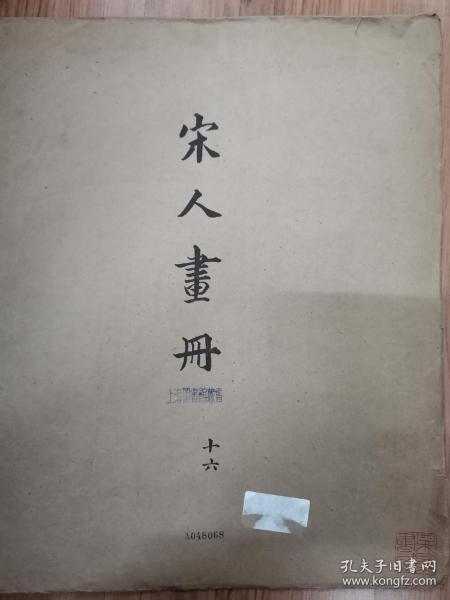 宋人畫冊
上海圖書館藏書
十六
A048068
孔夫子旧书网
www.kongfz.com